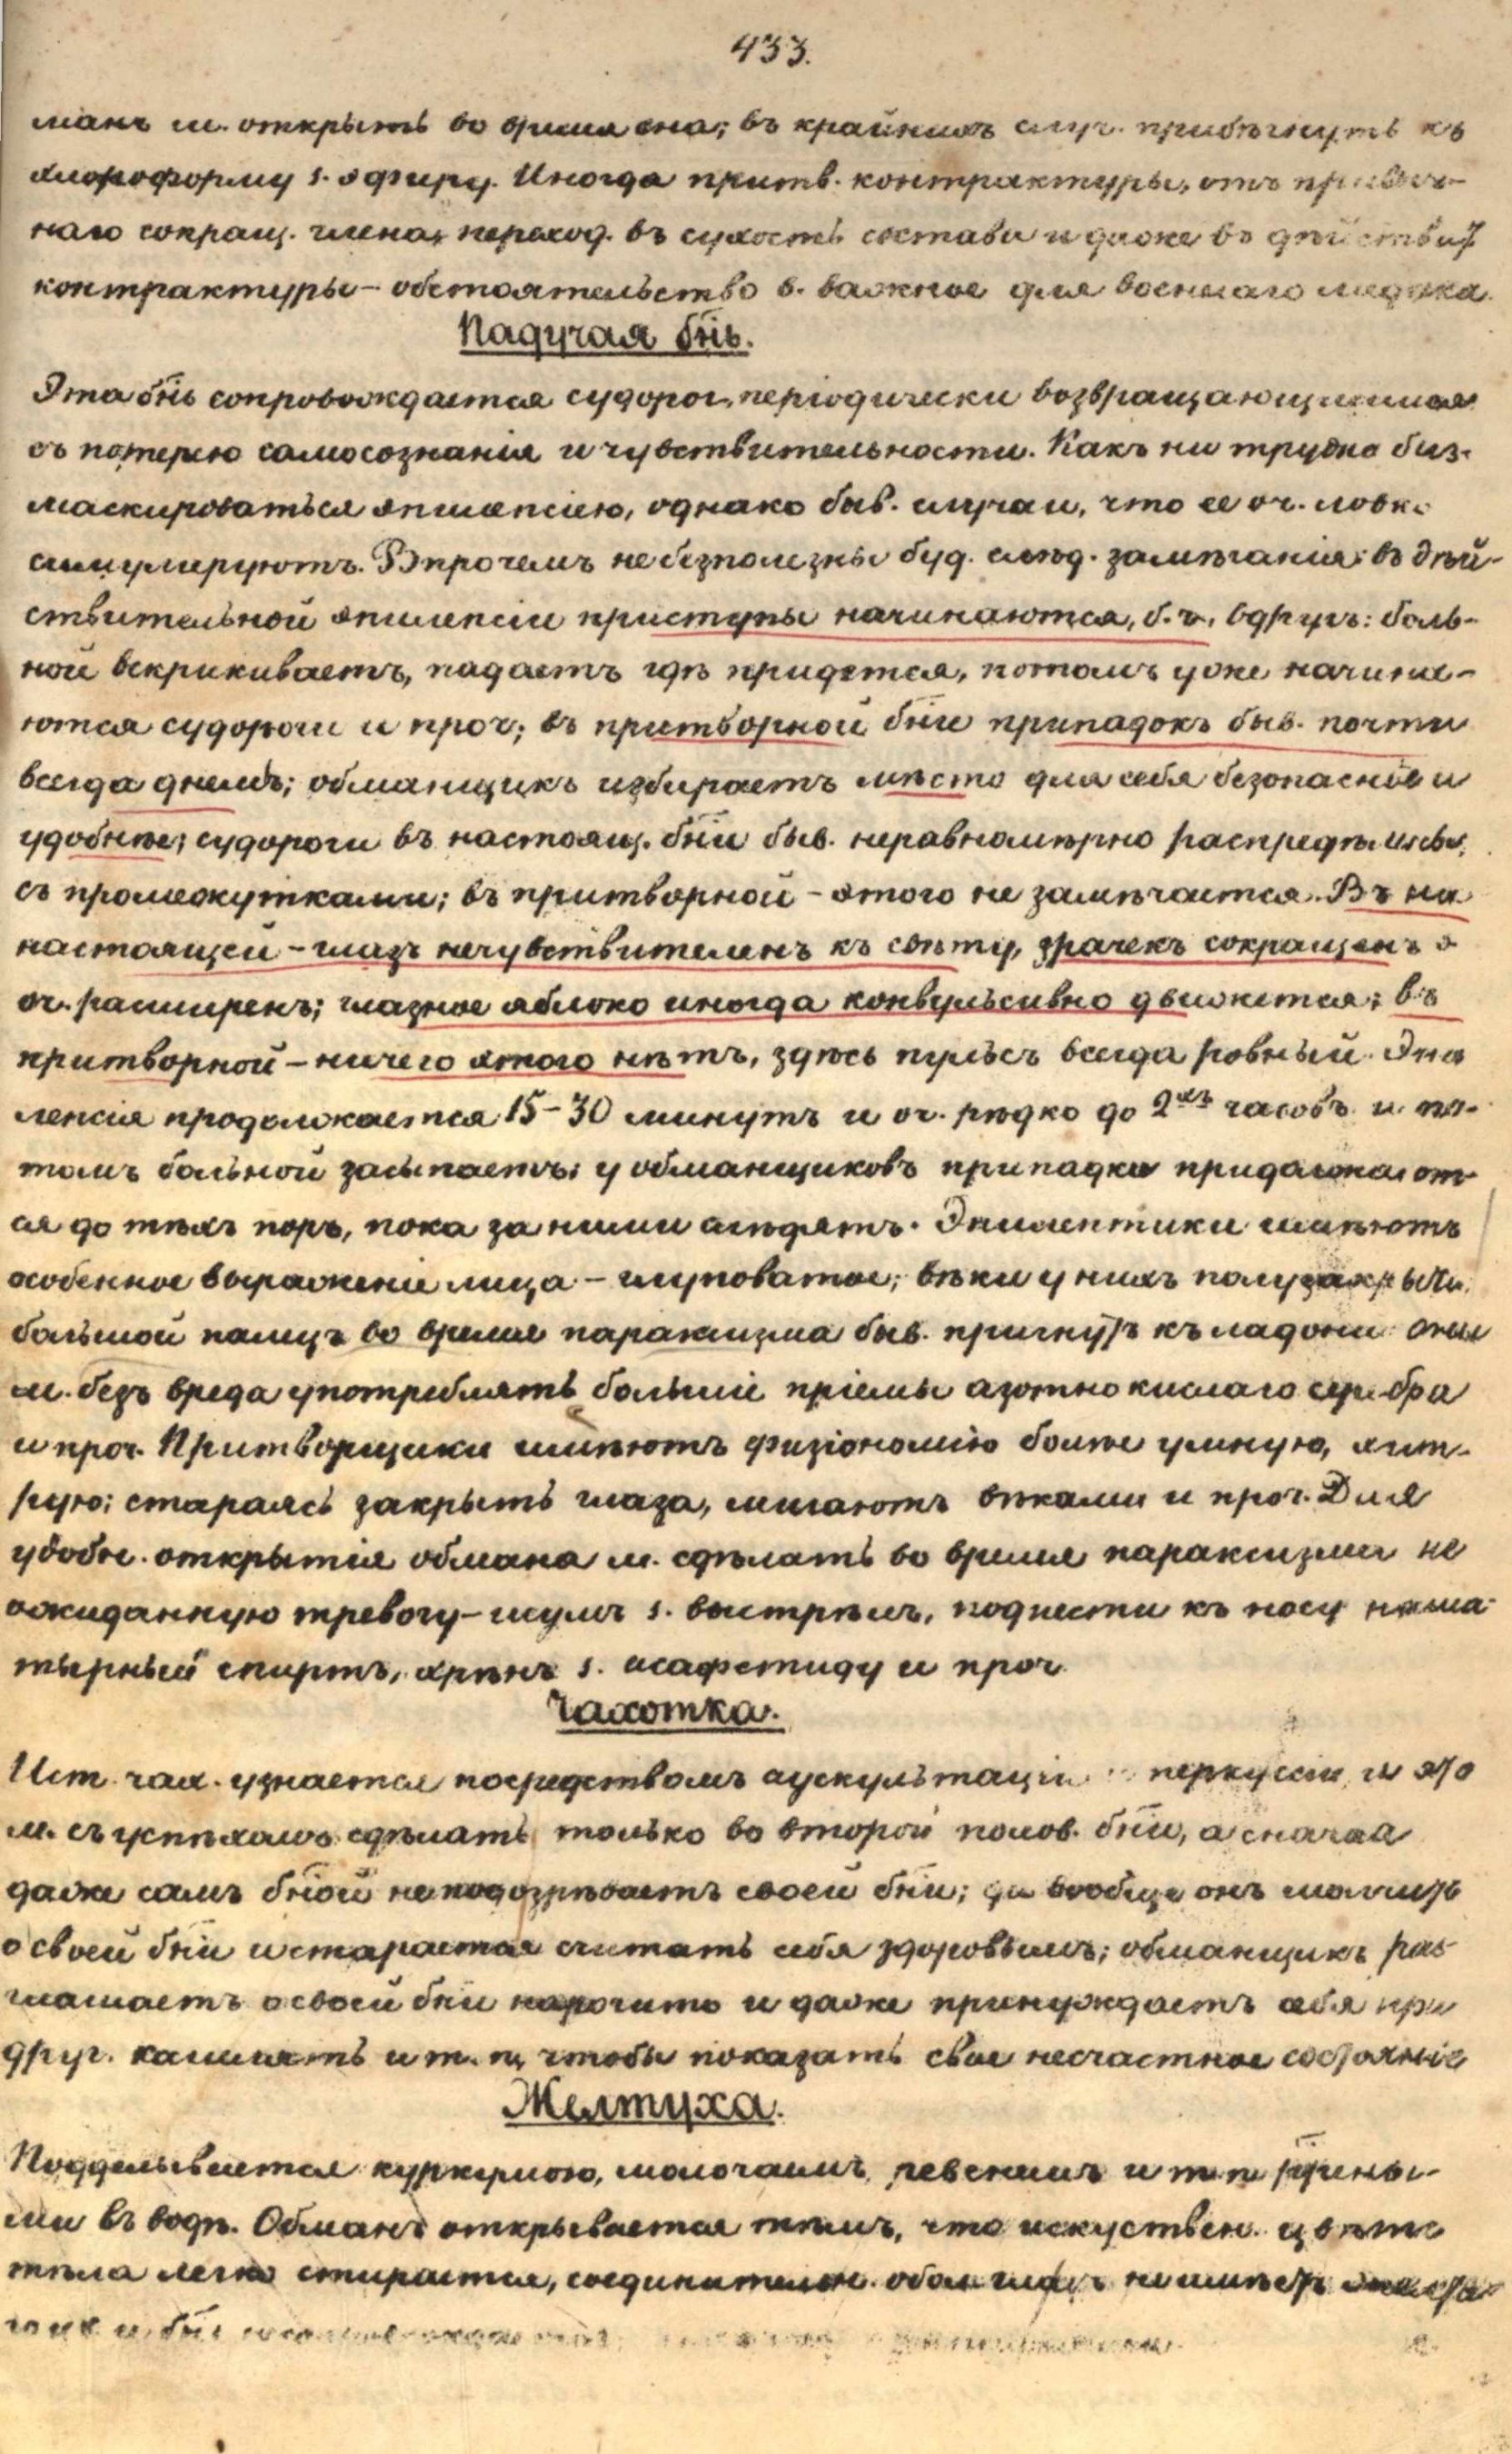 433.
манъ м. открыть во время сна; въ крайнихъ случ. прибѣгнуть къ
хлороформу s. эфиру. Иногда притв. контрактуры, отъ привыч-
наго сокращ. члена, переход. въ сухость состава и даже въ дѣйствит
контрактуры – обстоятельство в. важное для военнаго медика.
Падучая бнь.
Эта бнь сопровождается судорог. періодически возвращающимися
съ потерею самосознанія и чувствительности. Какъ ни трудно биз-
маскироваться эпилепсіею, однако быв. случаи, что ее оч. ловко
симулируютъ. Впрочемъ небезполезны буд. слѣд. замѣчанія: въ дѣй-
ствительной эпилепсіи приступы начинаются, б. ч., вдругъ: боль-
ной вскрикиваетъ, падаетъ гдѣ придется, потомъ уже начина-
ются судороги и проч; въ притворной бни припадокъ быв. почти
всегда днемъ; обманщикъ избираетъ мѣсто для себя безопасное и
удобнѣе; судороги въ настоящ. бни быв. неравномѣрно распредѣлены,
съ промежутками; въ притворной – этого не замѣчается. Въ на
настоящей – глазъ нечувствителенъ къ свѣту, зрачекъ сокращенъ s
оч. расширенъ; глазное яблоко иногда конвульсивно движется; въ
притворной – ничего этого нѣтъ, здѣсь пульсъ всегда ровный. Эпи
лепсія продолжается 15–30 минутъ и оч. рѣдко до 2хъ часовъ и по-
томъ больной засыпаетъ; у обманщиковъ припадки придолжают
ся до тѣхъ поръ, пока за ними слѣдятъ. Эпилептики имѣютъ
особенное выраженіе лица – глуповатое; вѣки у нихъ полузакрыты,
большой палецъ во время пароксизма быв. пригнутъ къ ладони они
м. безъ вреда употреблять большіе пріемы азотнокислаго серебра
и проч. Притворщики имѣютъ физіономію болѣе умную, хит-
рую; стараясь закрыть глаза, мигаютъ вѣками и проч. Для
удобн. открытія обмана м. сдѣлать во время пароксизма не
ожиданную тревогу – шумъ s. выстрѣлъ, поднести къ носу наша-
тырный спиртъ, хрѣнъ s. асафетиду и проч
Чахотка.
Ист. чах. узнается посредствомъ аускультаціи и перкуссіи, и это
м. съ успѣхомъ сдѣлать только во второй полов. бни, а сначала
даже самъ бной неподозрѣваетъ своей бни; да вообще онъ молчитъ
о своей бни и старается считать себя здоровымъ; обманщикъ раз-
глашаетъ о своей бни нарочито и даже принуждаетъ себя при
друг. кашлять и т. п. чтобы показать свое несчастное состояніе
Желтуха.
Поддѣлывается куркумою, молочаемъ, ревенемъ и т. п.
ми въ водѣ. Обманъ открывается тѣмъ, что искуствен. цвѣтъ
тѣла легко стирается, соединительн. обол. глазъ не имѣетъ